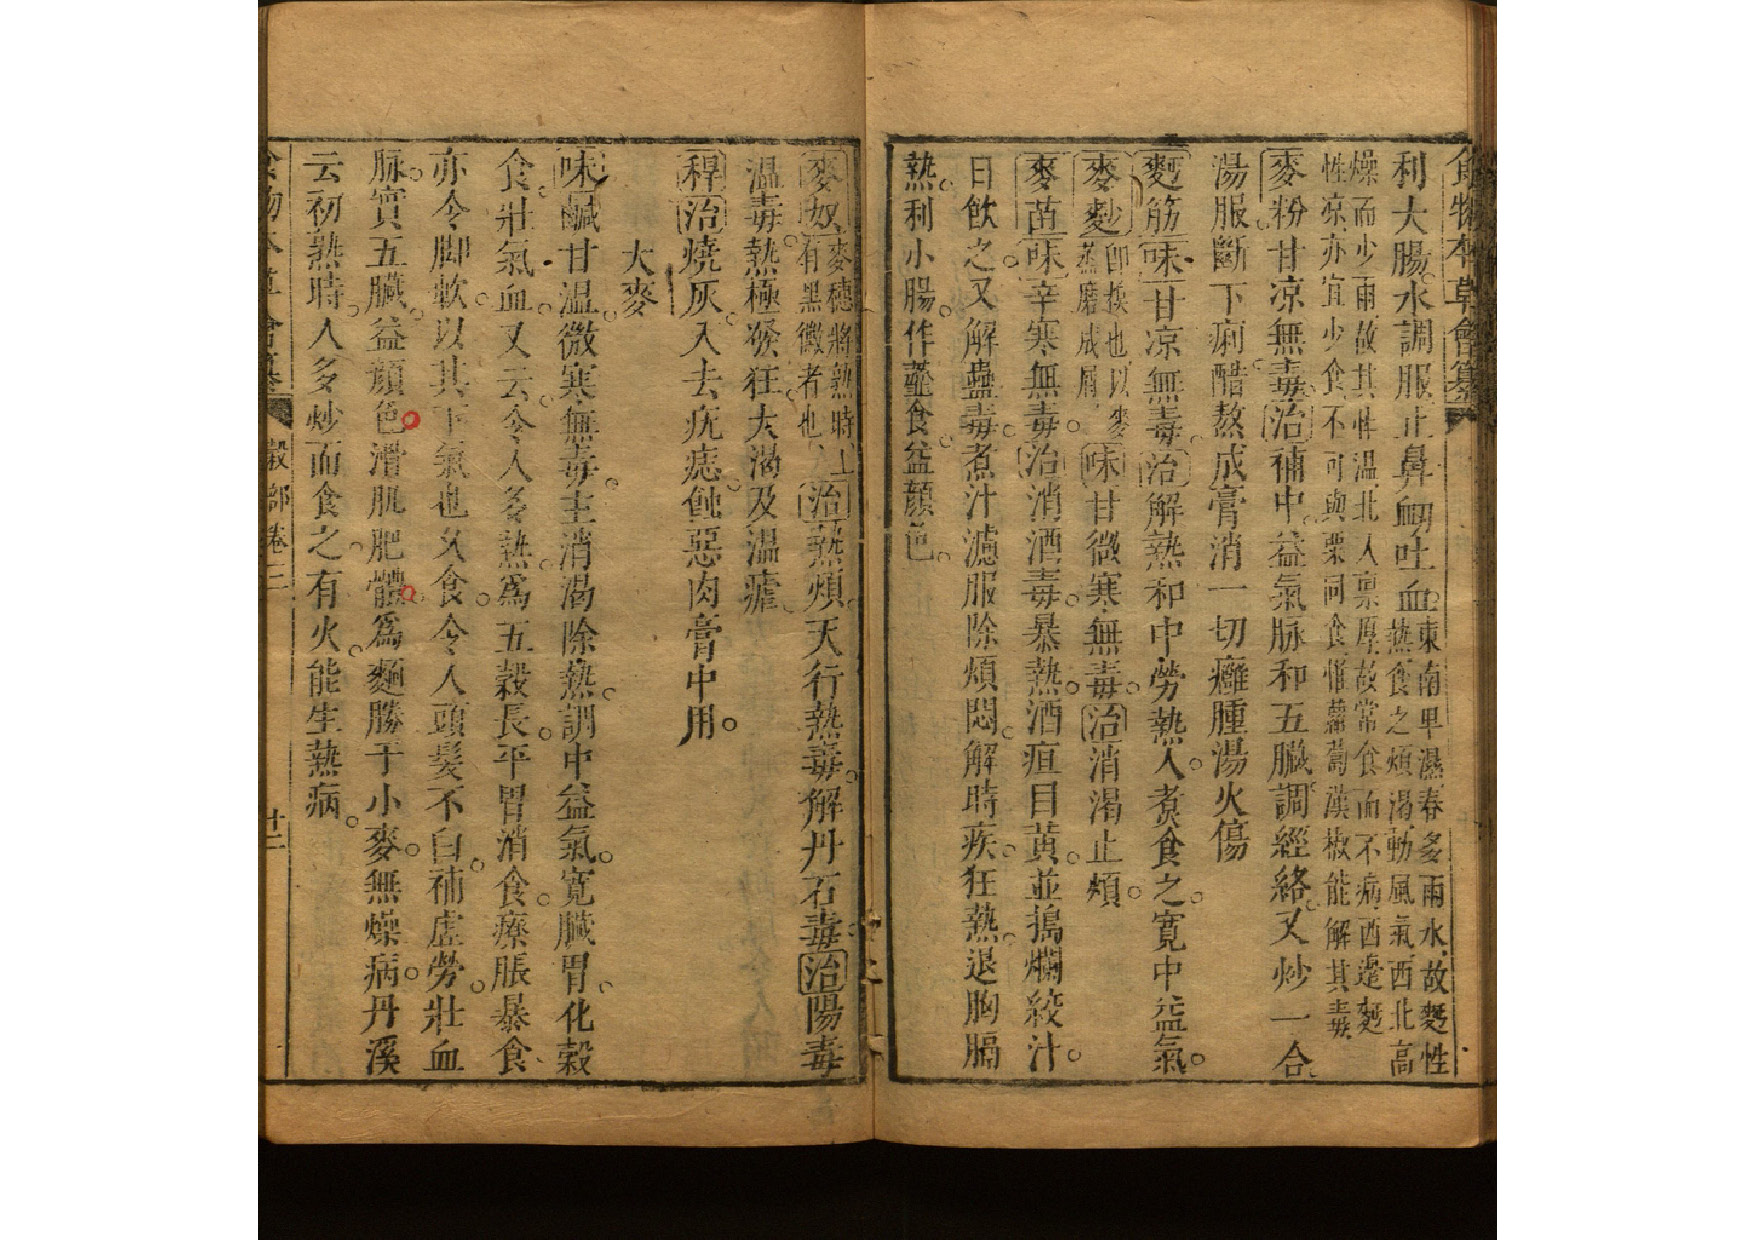 食物本草會纂
利大腸。水調服止鼻衄吐血。東南卑濕春多雨水故麪性
熱食之煩渴動風氣西北高
燥而少雨故其性溫北人稟厚故常食而不病西邊麪
性凉亦宜少食不可與粟同食惟蘿蔔漢椒能解其毒
麥粉甘凉無毒。治補中。益氣脉和五臟。調經絡。又炒一合。
湯服斷下痢。醋熬成膏消一切癰腫湯火傷
麪筋味甘凉無毒。治解熱和中勞熱人。煑食之。寬中益氣。
麥麨即糗也以麥
蒸磨成屑味甘微寒無毒。治消渴止煩。
麥苗味辛寒無毒。治消酒毒。暴熱。酒疸目黃。並搗爛絞汁。
日飲之。又解蠱毒。煮汁濾服除煩悶。解時疾。狂熱。退胸膈
熱。利小腸。作虀食。益顏色。
麥奴麥穗將熟時上
有黑黴者也治熱煩。天行熱毒。解丹石毒治陽毒
溫毒。熱極發狂。大渴及溫瘧。
稈治燒灰入去疣痣。蝕惡肉膏中用。
大麥
味鹹甘溫。微寒無毒。主消渴除熱。調中益氣。寬臟胃。化穀
食。壯氣血。又云。令人多熱。爲五穀長。平胃消食。療脹暴食
亦令脚軟。以其下氣也久食。令人頭髮不白。補虛勞。壯血
脉。實五臟。益顏色。滑肌肥體。爲麵勝于小麥。無燥病。丹溪
云初熟時。人多炒而食之。有火。能生熱病。
食物本草會纂 穀部卷三 十二